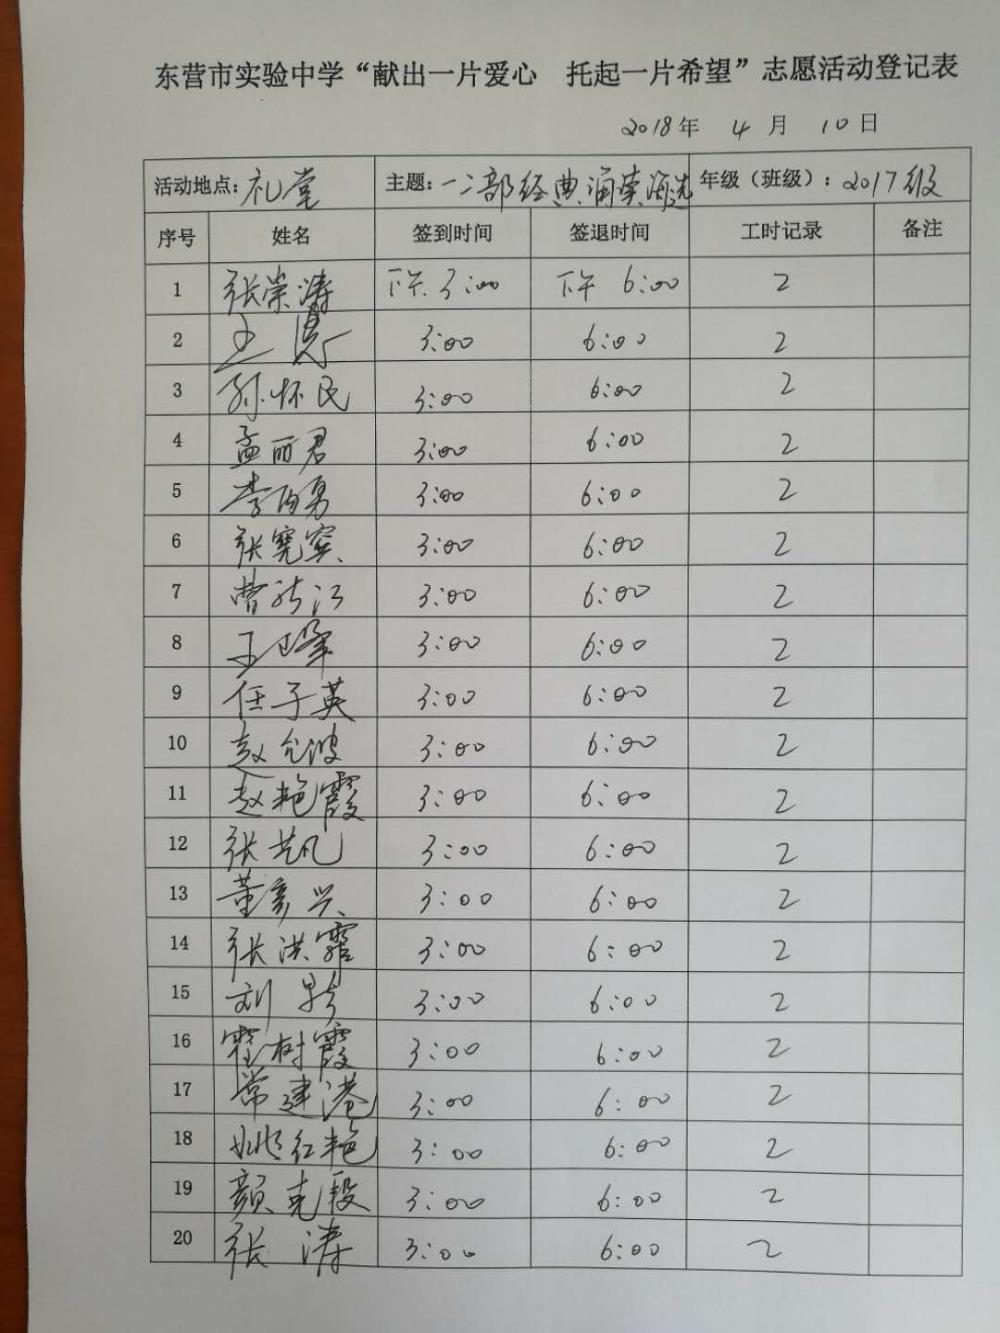 东营市实验中学“献出一片爱心 托起一片希望”志愿活动登记表
2018年 4月 10日
活动地点：礼堂 主题：一二部经典诵读海选 年级（班级）：2017级
序号 姓名 签到时间 签退时间 工时记录 备注
1 张崇涛 下午 3:00 下午 6:00 2
2 王 3:00 6:00 2
3 孙怀民 3:00 6:00 2
4 孟丽君 3:00 6:00 2
5 李 勇 3:00 6:00 2
6 张宪宾 3:00 6:00 2
7 曹 江 3:00 6:00 2
8 王 3:00 6:00 2
9 任子英 3:00 6:00 2
10 赵 波 3:00 6:00 2
11 赵艳霞 3:00 6:00 2
12 张 凡 3:00 6:00 2
13 董彦兴 3:00 6:00 2
14 张洪霞 3:00 6:00 2
15 刘 3:00 6:00 2
16 霍树霞 3:00 6:00 2
17 常建港 3:00 6:00 2
18 姚红艳 3:00 6:00 2
19 颜克段 3:00 6:00 2
20 张涛 3:00 6:00 2